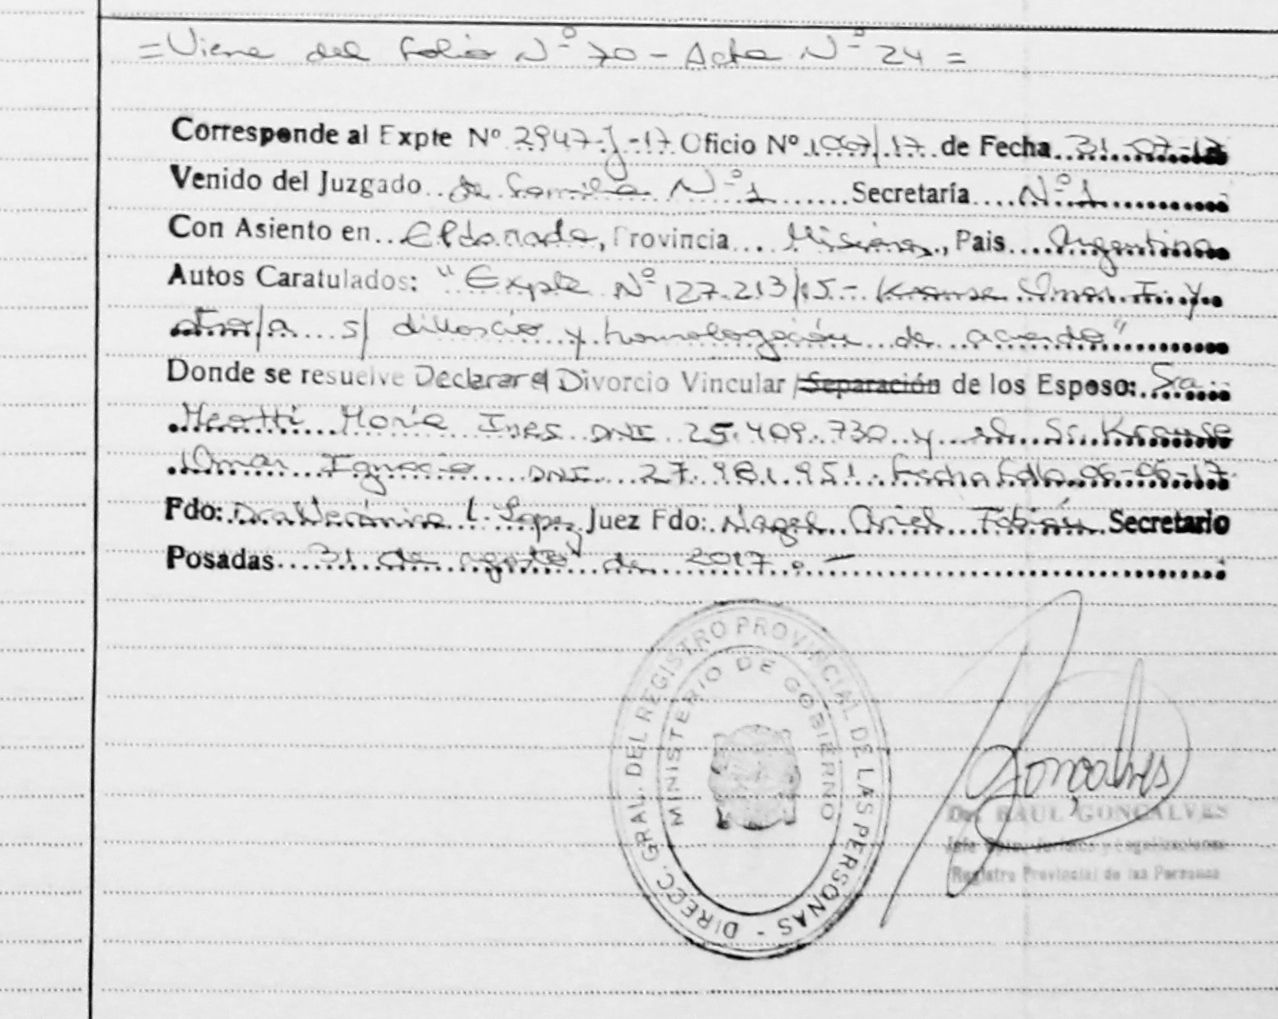 = Viene del folio Nº 70 - Acta Nº 24 =
Corresponde al Expte Nº 2947-J-17 Oficio Nº 1067/17 de Fecha 31-07-17
Venido del Juzgado de Familia Nº 1 Secretaría Nº 1
Con Asiento en Eldorado, Provincia Misiones, Pais Argentina
Autos Caratulados: "Expte Nº 127.213/15 - Krause Omar I. y
otro/a s/ divorcio y homologación de acuerdo"
Donde se resuelve Declarar el Divorcio Vincular / Separación de los Esposo: Sra
María Ines DNI 25.409.730 y el Sr. Krause
Omar Ignacio DNI 27.981.951 Fecha Fallo 06-06-17
Fdo: Dra Verónica L. Lopez Juez Fdo: Nagel Ariel Fabián Secretario
Posadas 31 de agosto de 2017. -
DIRECC. GRAL. DEL REGISTRO PROVINCIAL DE LAS PERSONAS -
MINISTERIO DE GOBIERNO
Gonçalves
Dr. RAUL GONÇALVES
Jefe Dpto. Jurídico y Legalizaciones
Registro Provincial de las Personas